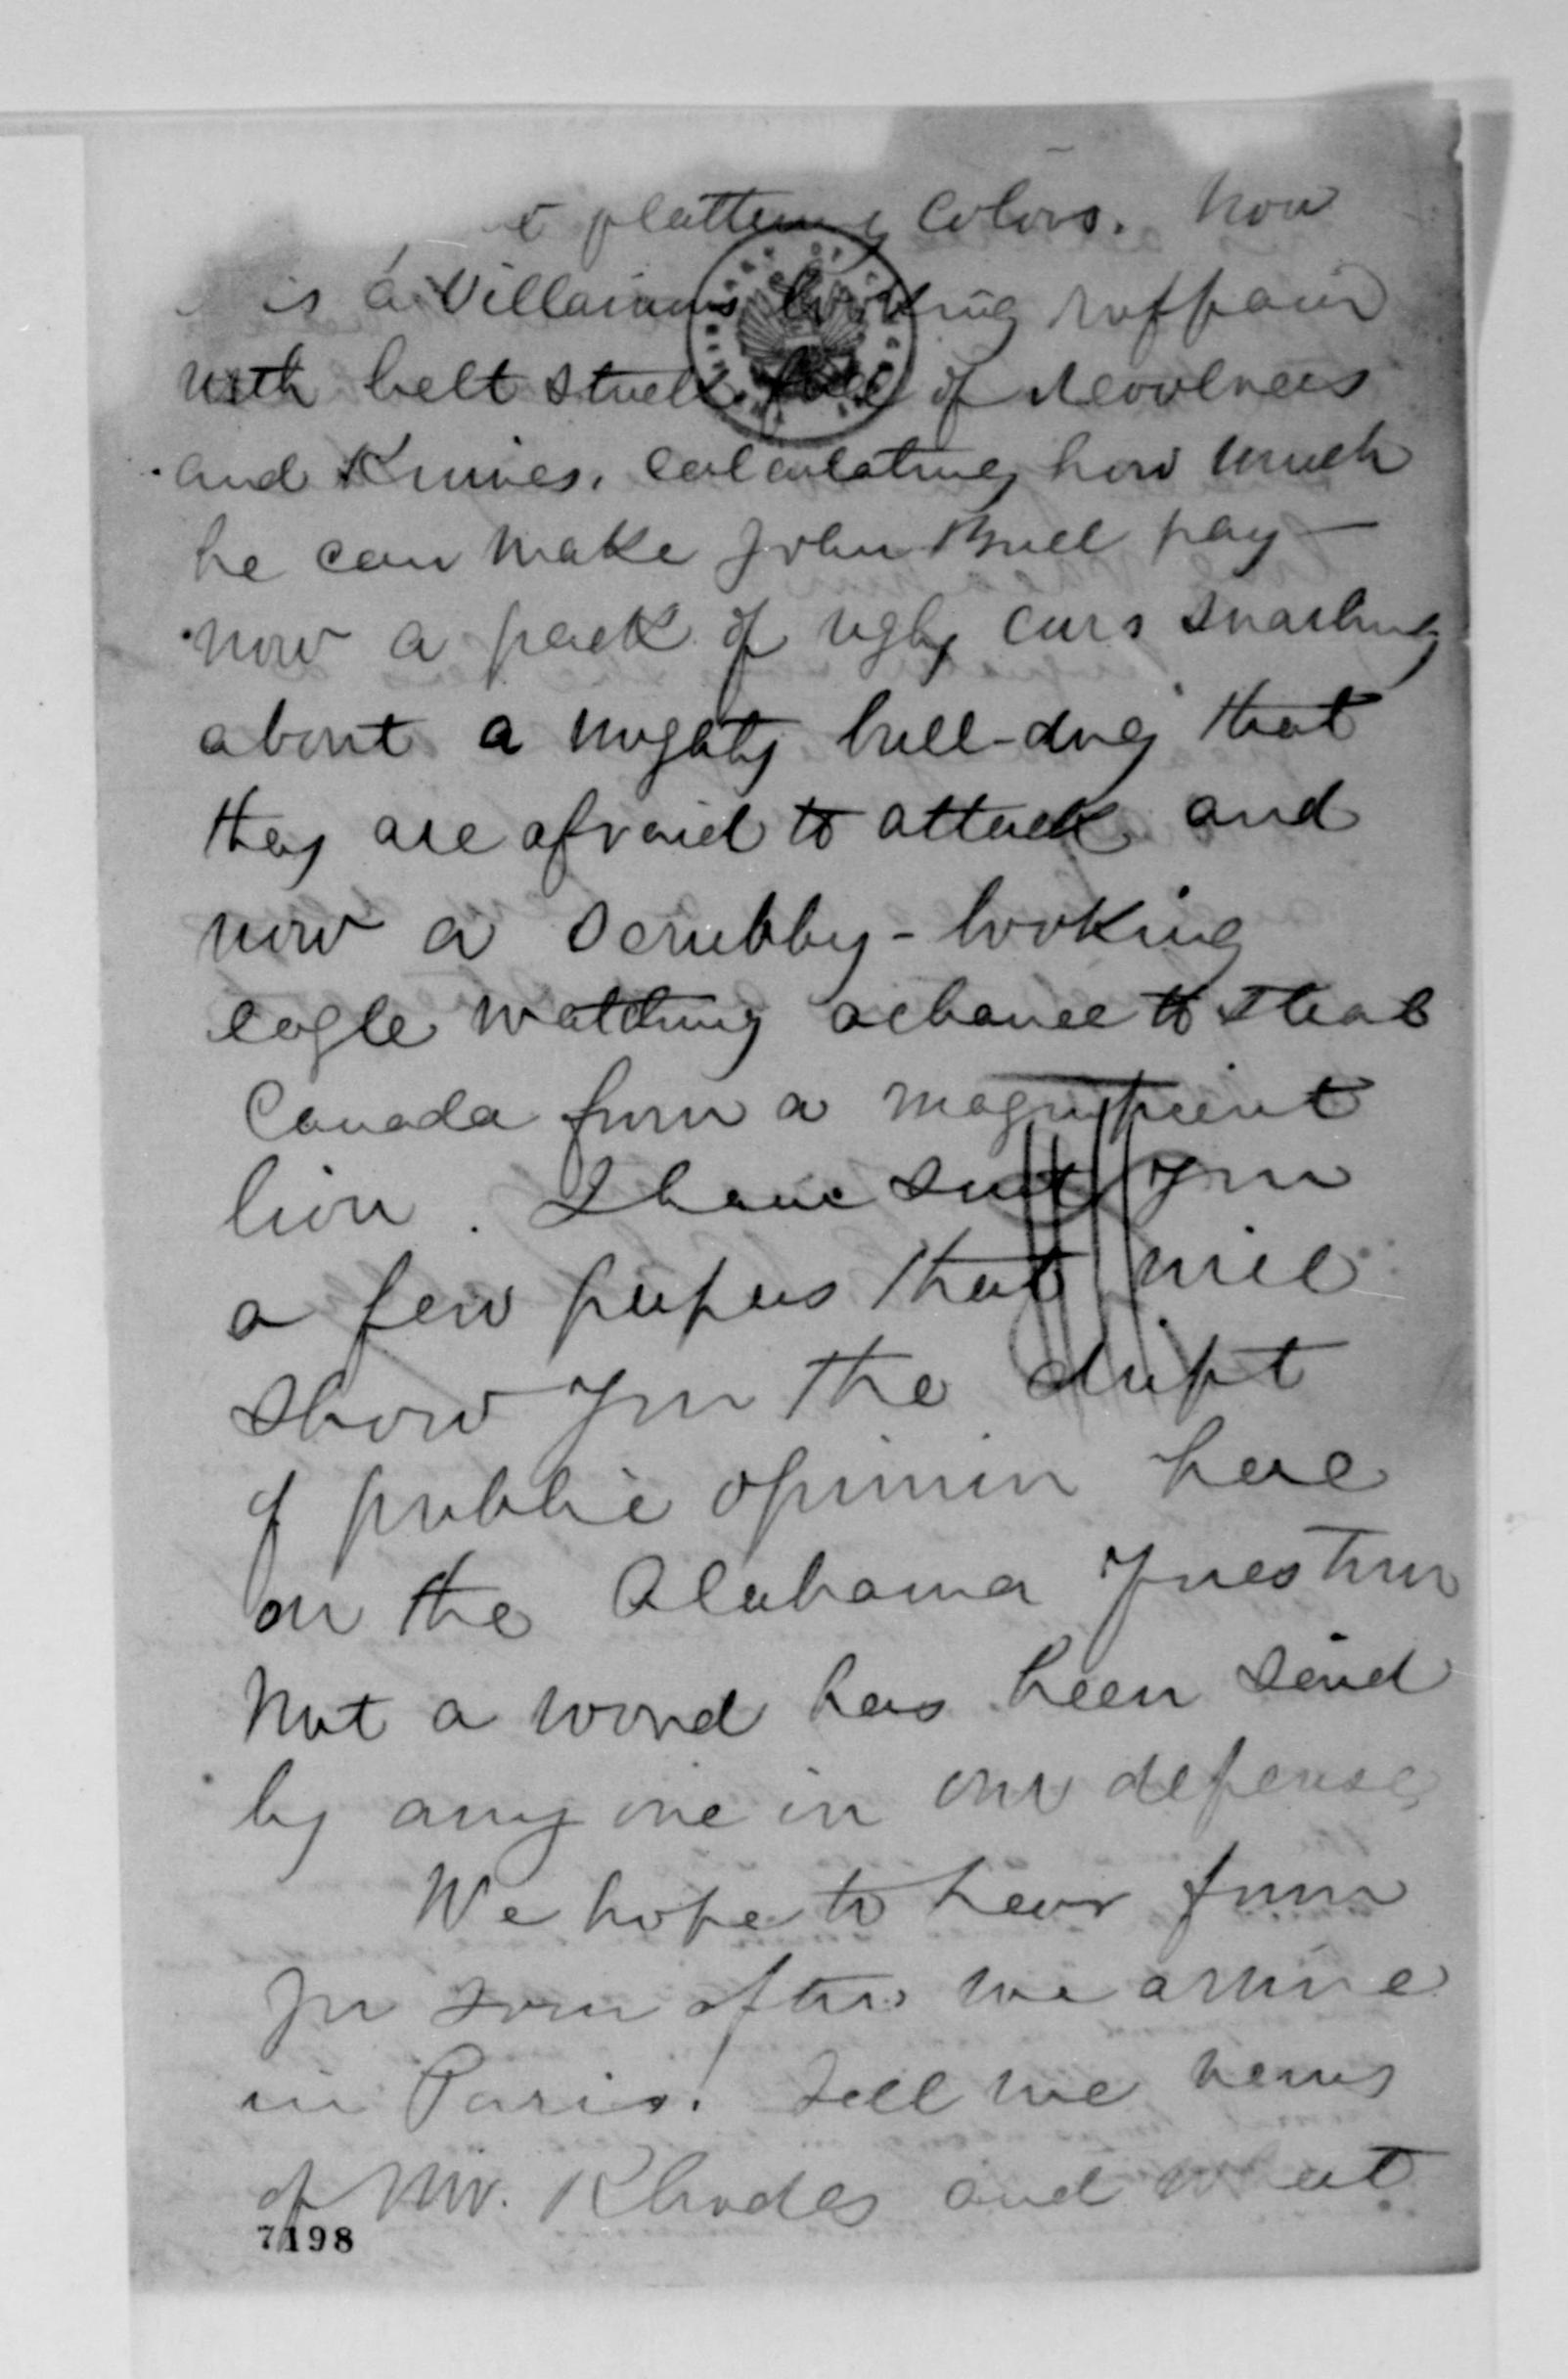 flattering colors. Now
is a villainous looking ruffain
with belt stuck full of revolvers
and Knives, calculating how much
he can make John Bull pay —
now a pack of ugly curs snarling
about a mighty bull-dog that
they are afraid to attack and
now a scrubby-looking
eagle watching a chance to steal
Canada from a magnificent
lion. I have sent you
a few papers that will
show you the drift
of public opinion here
on the Alabama question
Not a word has been said
by any one in our defense
We hope to hear from
you soon after we arrive
in Paris. Tell me news
of Mr. Rhodes and what
7198